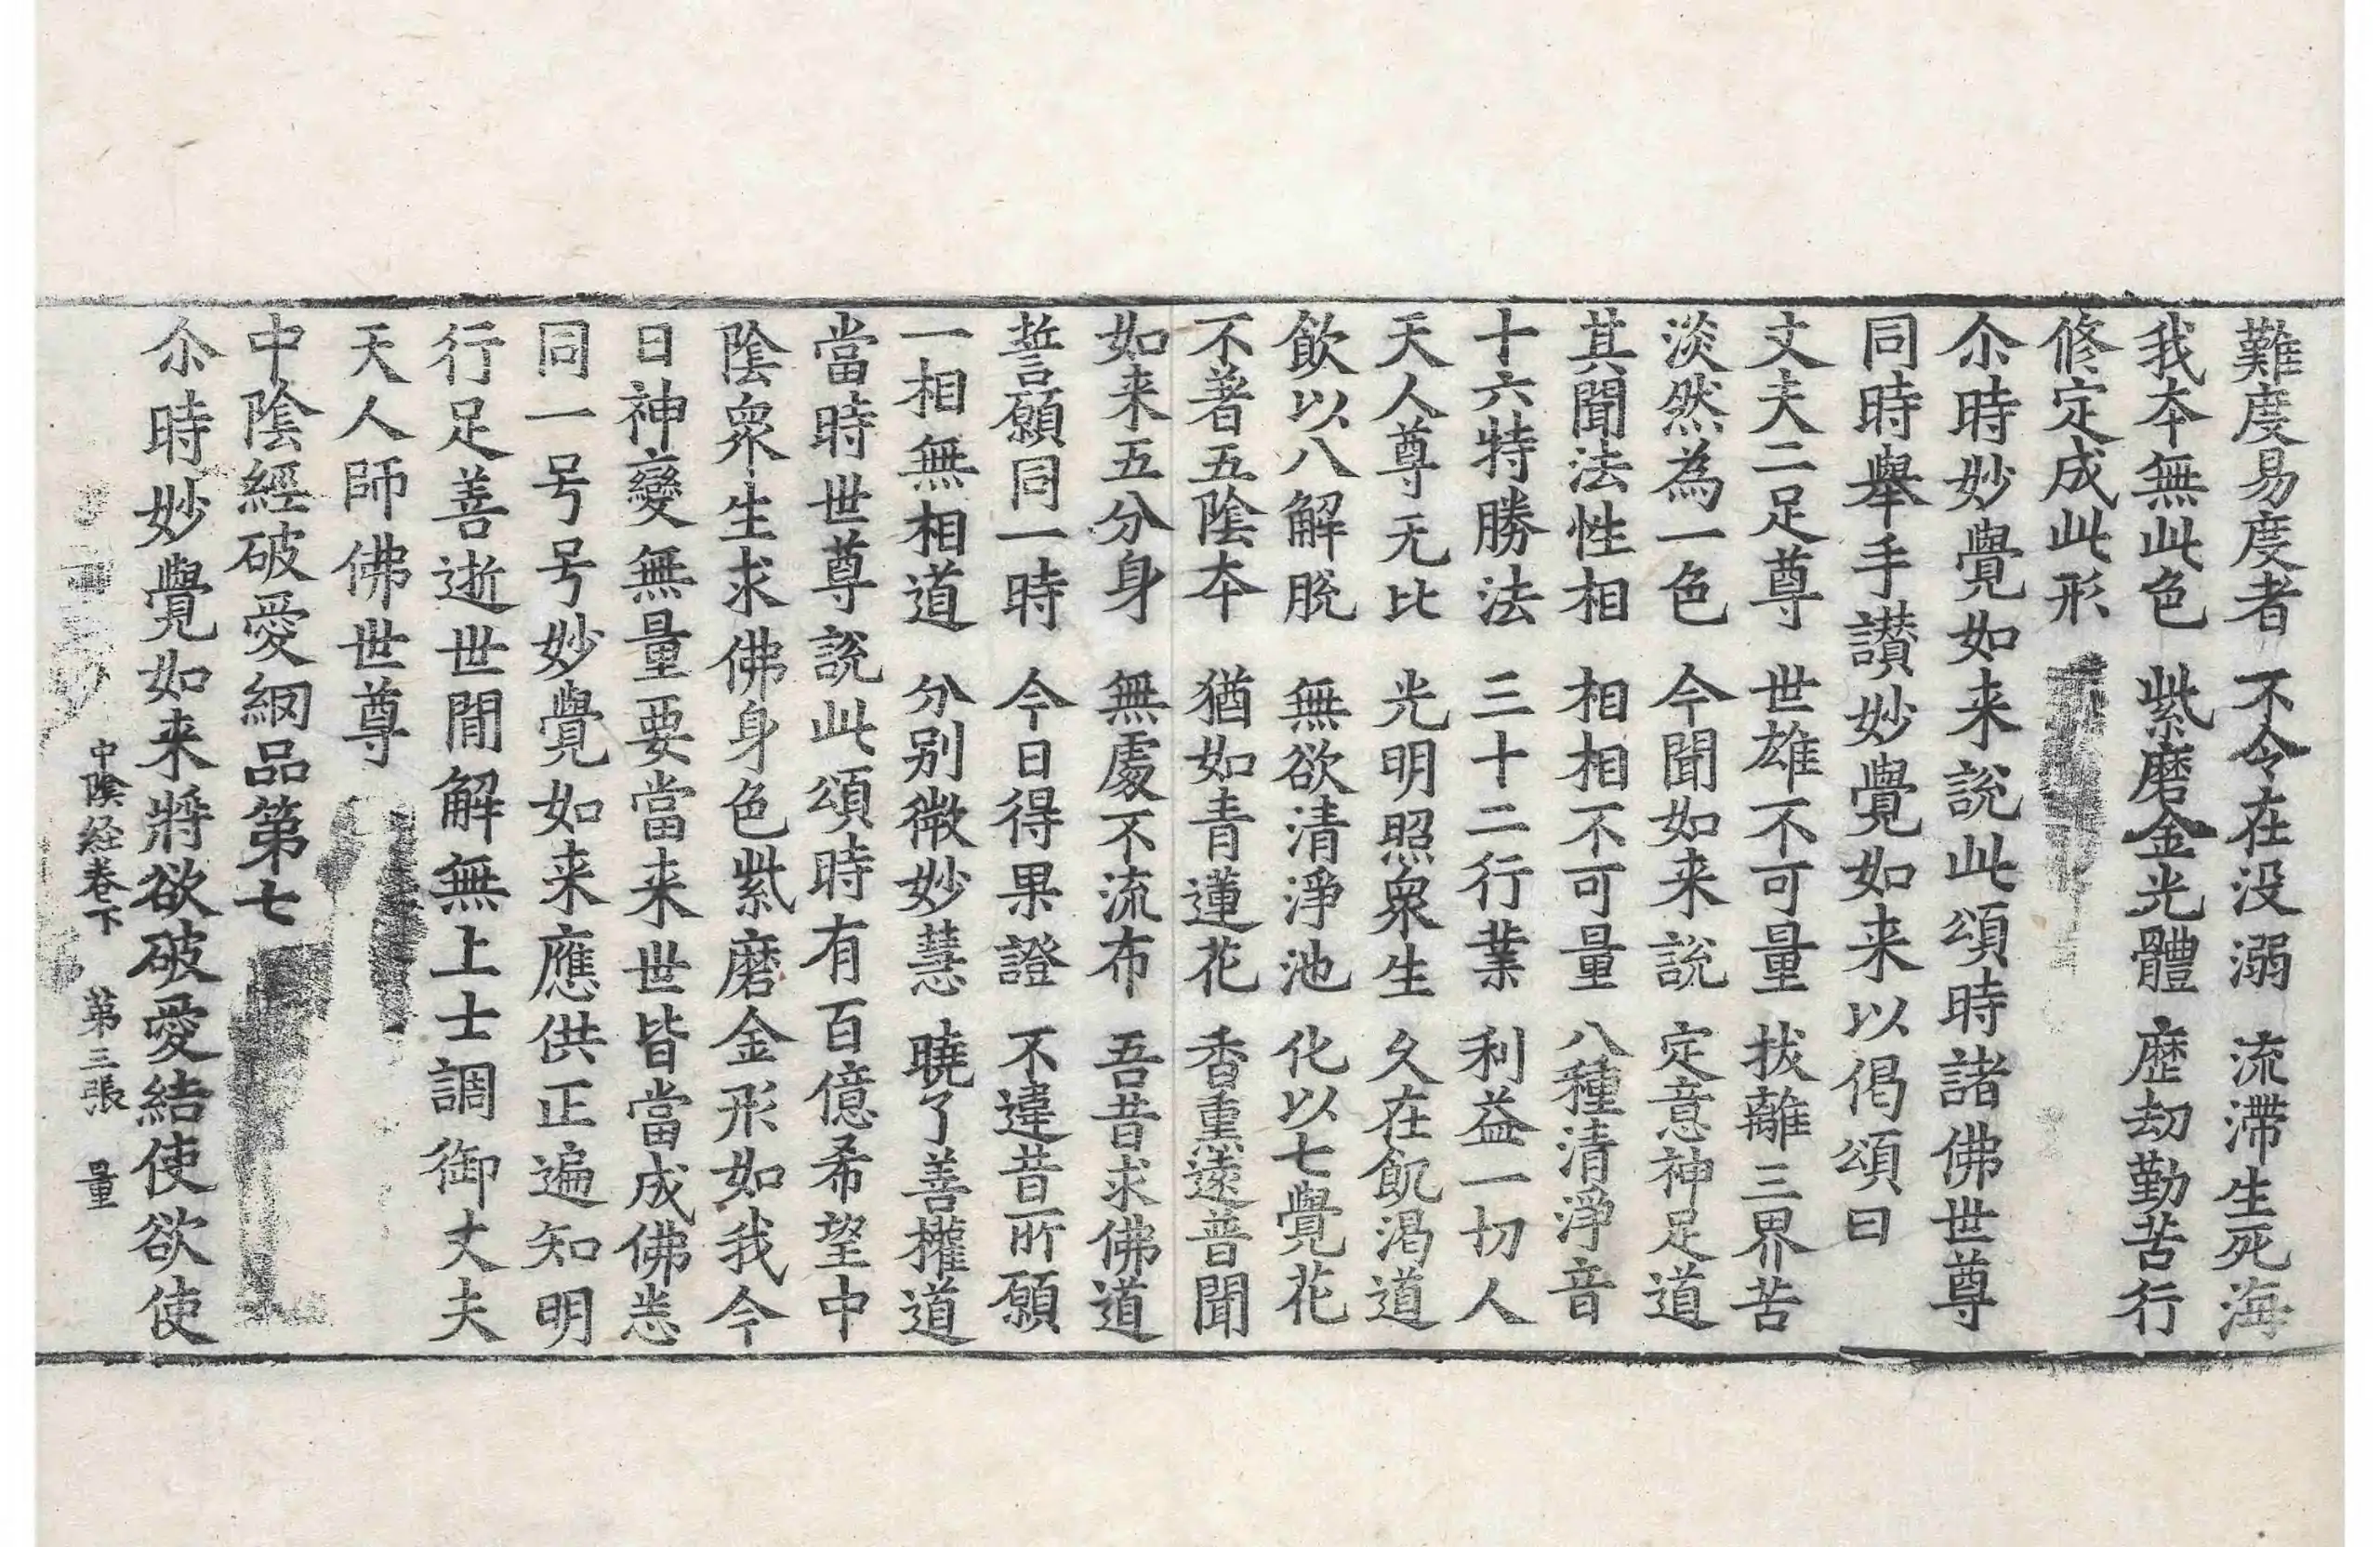 難度易度者　不令在没溺　流滯生死海
我夲無此色　紫磨金光體　歷劫勤苦行
修定成此形
尒時妙覺如来說此頌時諸佛世尊
同時舉手讃妙覺如来以偈頌曰
丈夫二足尊　世雄不可量　拔離三界苦
淡然為一色　今聞如来說　定意神足道
其聞法性相　相相不可量　八種清淨音
十六特勝法　三十二行業　利益一切人
天人尊无比　光明照衆生　久在飢渴道
飲以八解脫　無欲清淨池　化以七覺花
不著五陰夲　猶如青蓮花　香熏遠普聞
如来五分身　無處不流布　吾昔求佛道
誓願同一時　今日得果證　不違昔所願
一相無相道　分别微妙慧　曉了善權道
當時世尊說此頌時有百億希望中
陰衆生求佛身色紫磨金形如我今
日神變無量要當来世皆當成佛悉
同一号号妙覺如来應供正遍知明
行足善逝世間解無上士調御丈夫
天人師佛世尊
中陰經破愛網品第七
尒時妙覺如来將欲破愛結使欲使
中陰経卷下　第三張　量